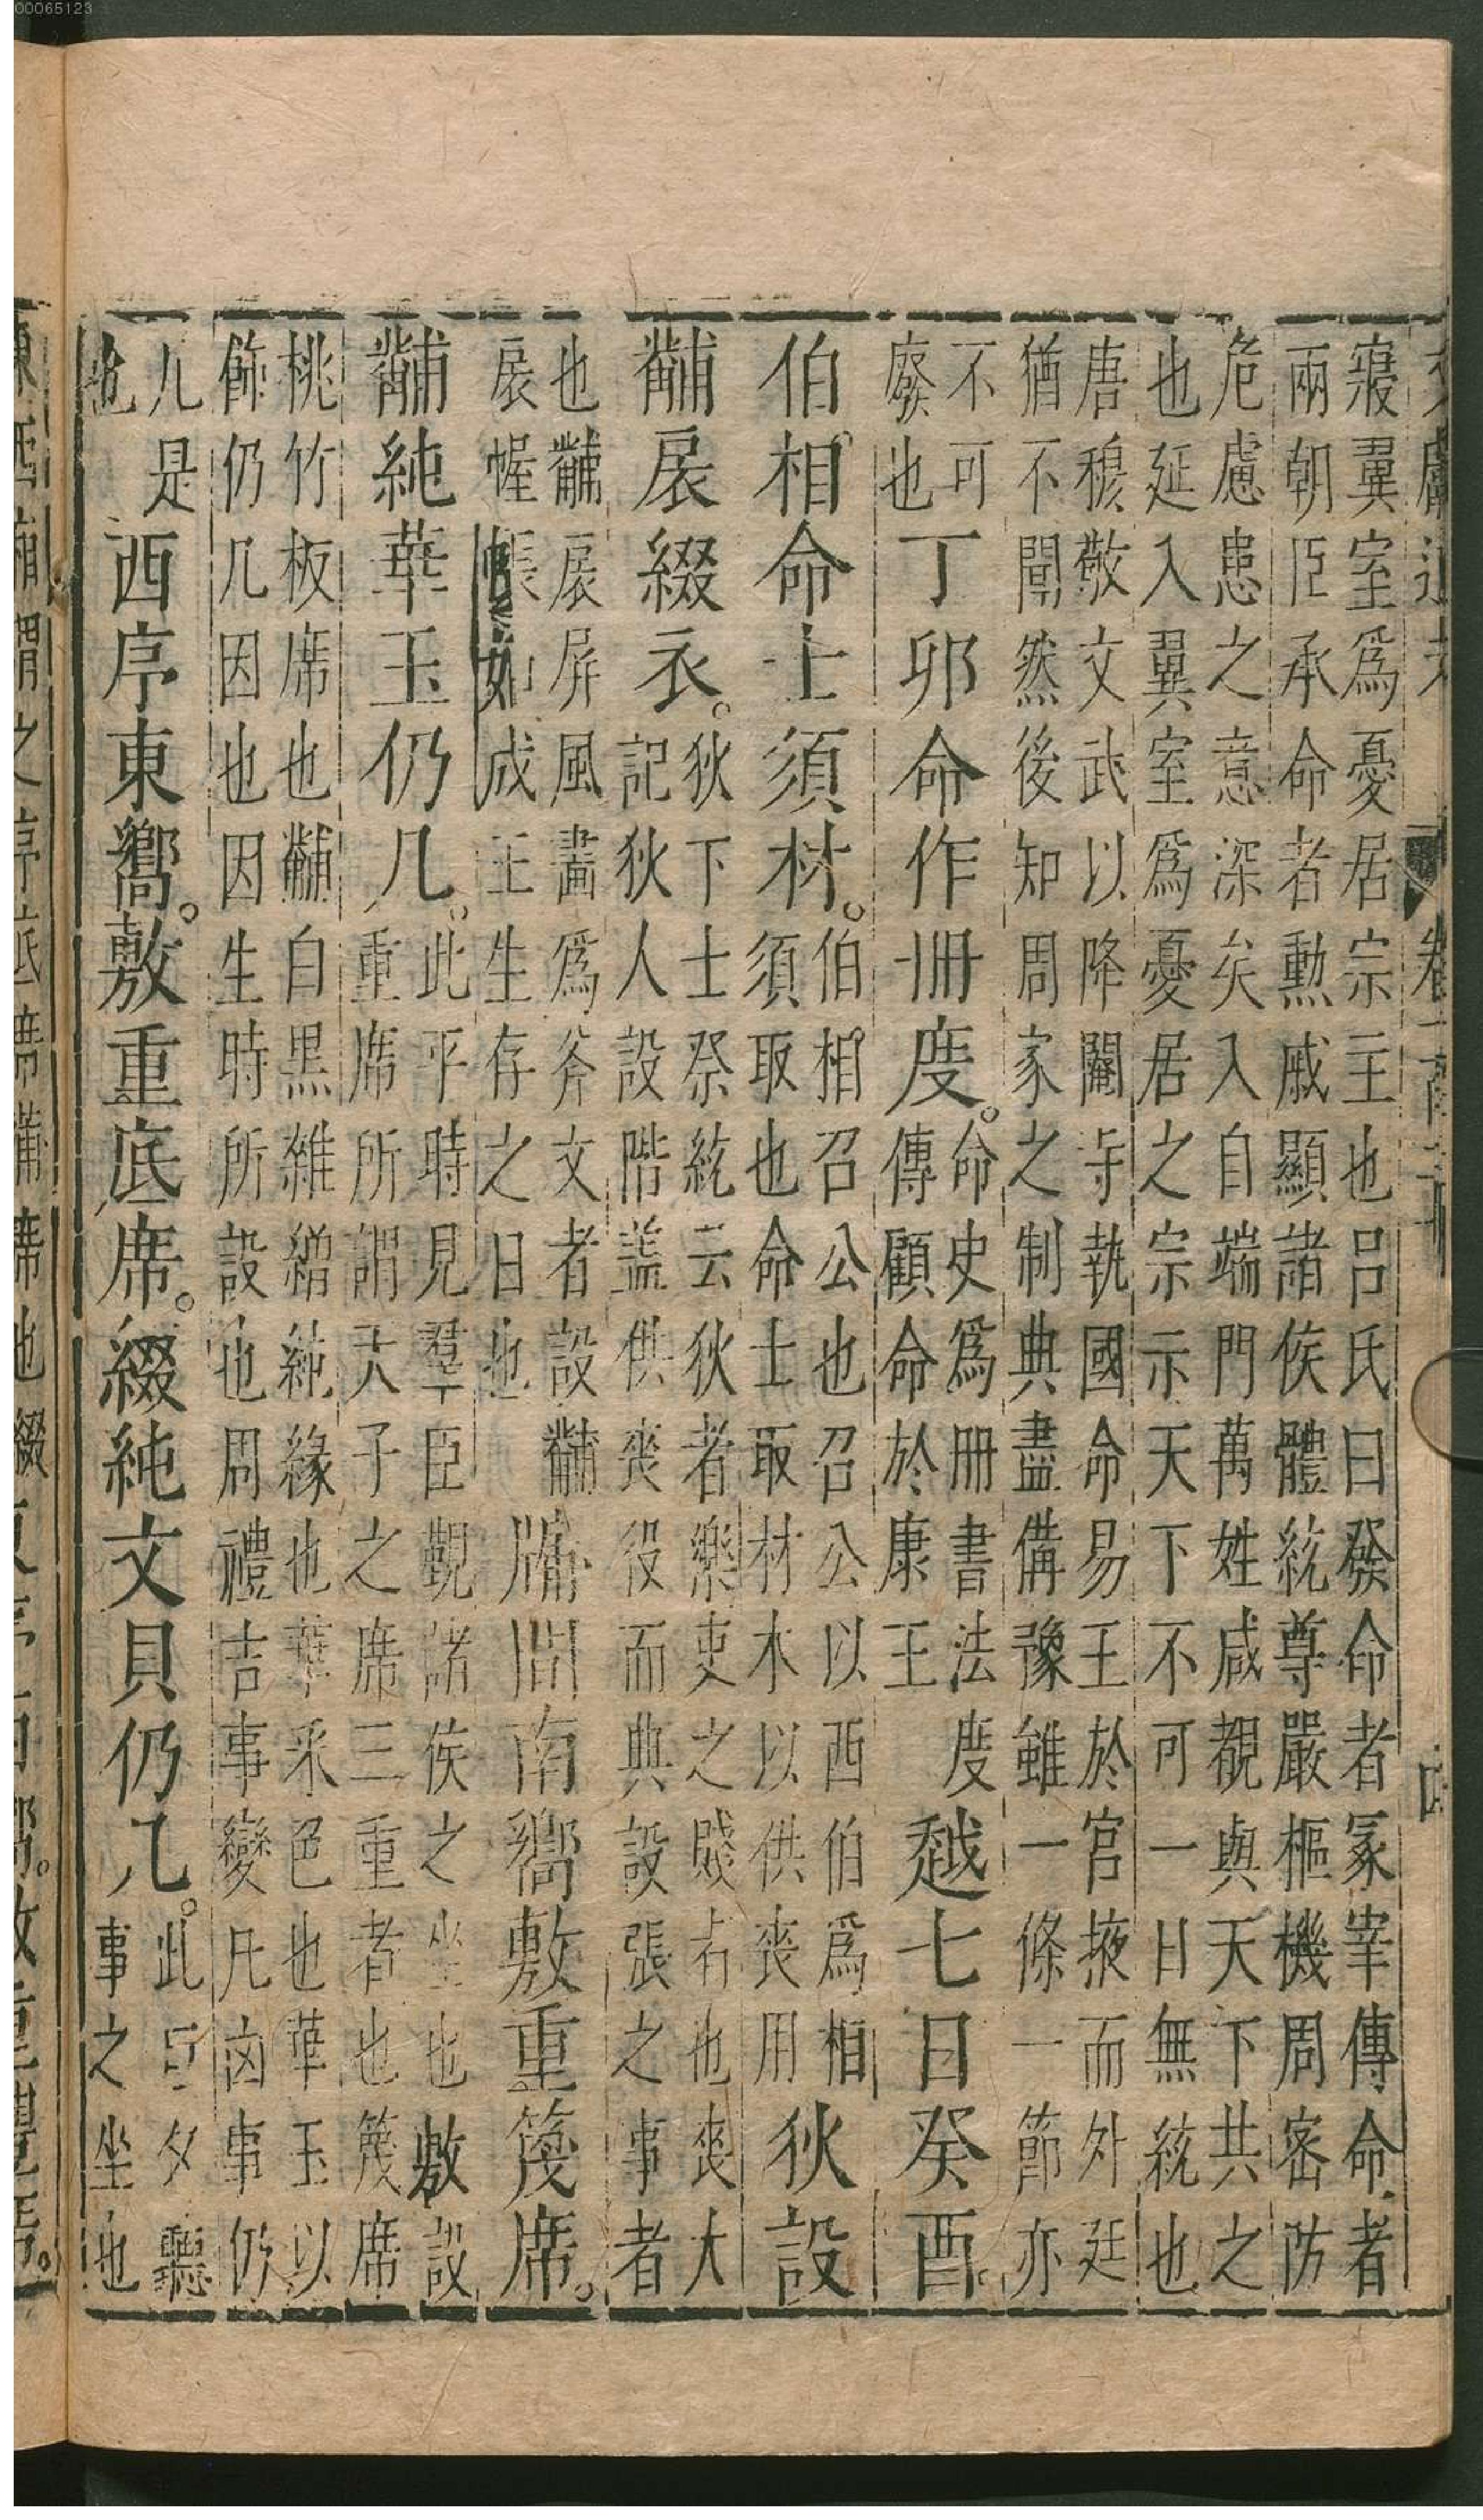 寢翼室爲憂居宗主也呂氏曰發命者冢宰傳命者
兩朝臣承命者勳戚顯諸侯體統尊嚴樞機周密防
危慮患之意深矣入自端門萬姓咸覩與天下共之
也延入翼室爲憂居之宗示天下不可一日無統也
唐穆敬文武以降閹寺執國命易主於宮掖而外廷
猶不聞然後知周家之制典盡備豫雖一條一節亦
不可
廢也
丁卯命作冊度。
命史爲冊書法度
傳顧命於康王
越七日癸酉。
伯相命士須材。
伯相召公也召公以西伯爲相
須取也命士取材木以供喪用
狄設
黼扆綴衣。
狄下士祭統云狄者樂吏之賤者也喪大
記狄人設階盖供喪役而典設張之事者
也黼扆扆屏風畫爲斧文者設黼
扆幄帳如成王生存之日也
牖間南嚮敷重篾席。
黼純華玉仍几。
此平時見羣臣覲諸侯之坐也敷設
重席所謂天子之席三重者也篾席
桃竹板席也黼白黒雜繒純緣也華釆色也華玉以
飾仍几因也因生時所設也周禮吉事變凡凶事仍
几是
也
西序東嚮。敷重底席。綴純文貝仍几。
此旦夕聽
事之坐也